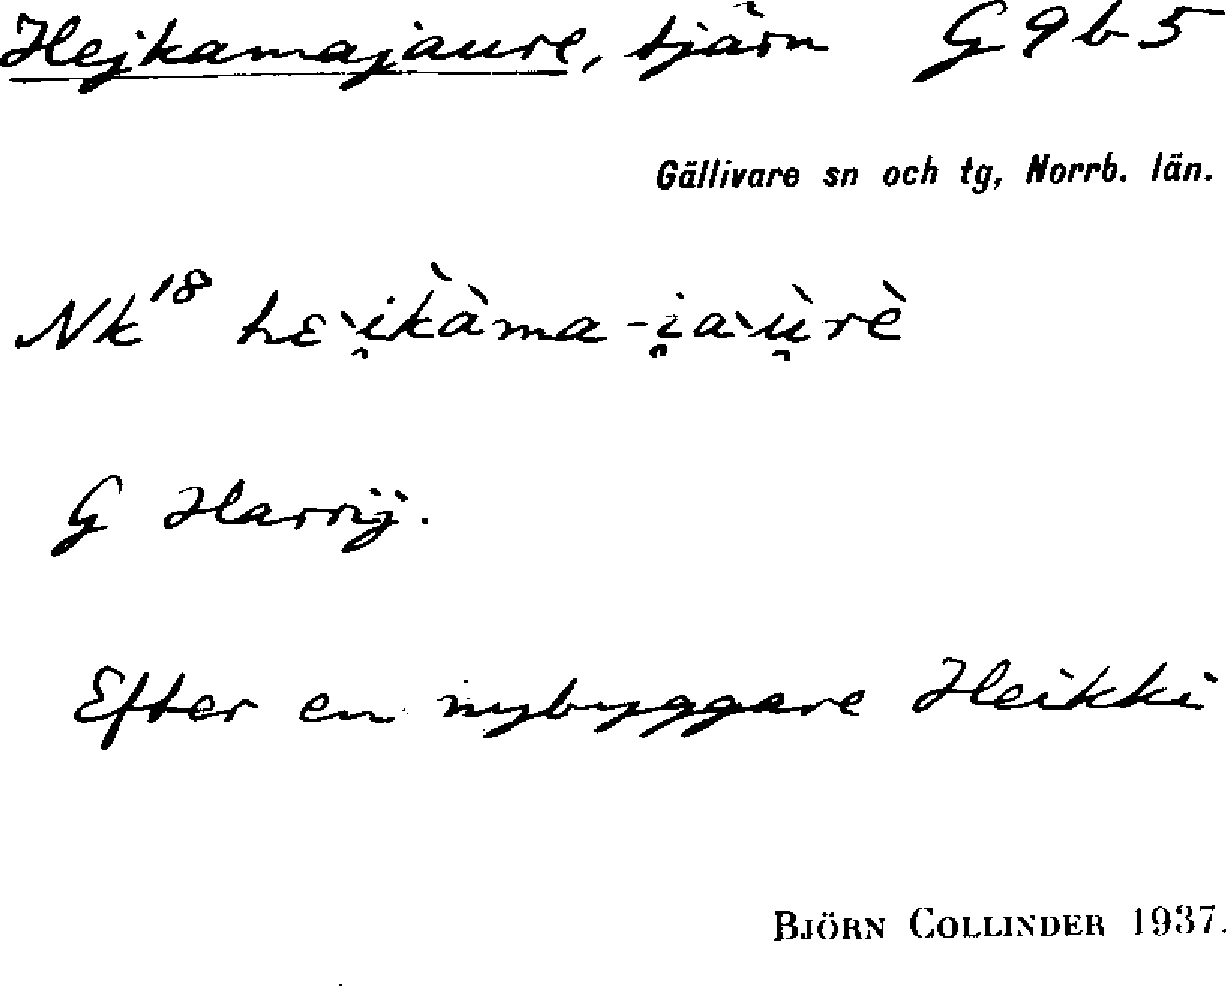 Hejkamajaure, tjärn G 9 b 5
Gällivare sn och tg, Norrb. län.
Nk¹⁸ hɛ̀i̯kàma-i̯àu̯rè
G Harrij.
Efter en nybyggare Heikki
BJÖRN COLLINDER 1937.